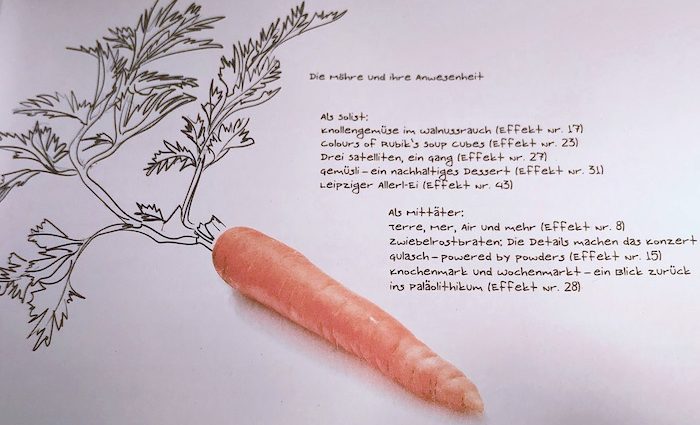 Die Möhre und ihre Anwesenheit
Als Solist:
Knollengemüse im Walnussrauch (Effekt Nr. 17)
Colours of Rubik's Soup Cubes (Effekt Nr. 23)
Drei Satelliten, ein Gang (Effekt Nr. 27)
Gemüsli – ein nachhaltiges Dessert (Effekt Nr. 31)
Leipziger Allerl-Ei (Effekt Nr. 43)
Als Mittäter:
Terre, Mer, Air und mehr (Effekt Nr. 8)
Zwiebelrostbraten: Die Details machen das Konzert
Gulasch – powered by powders (Effekt Nr. 15)
Knochenmark und Wochenmarkt – ein Blick zurück
ins Paläolithikum (Effekt Nr. 28)